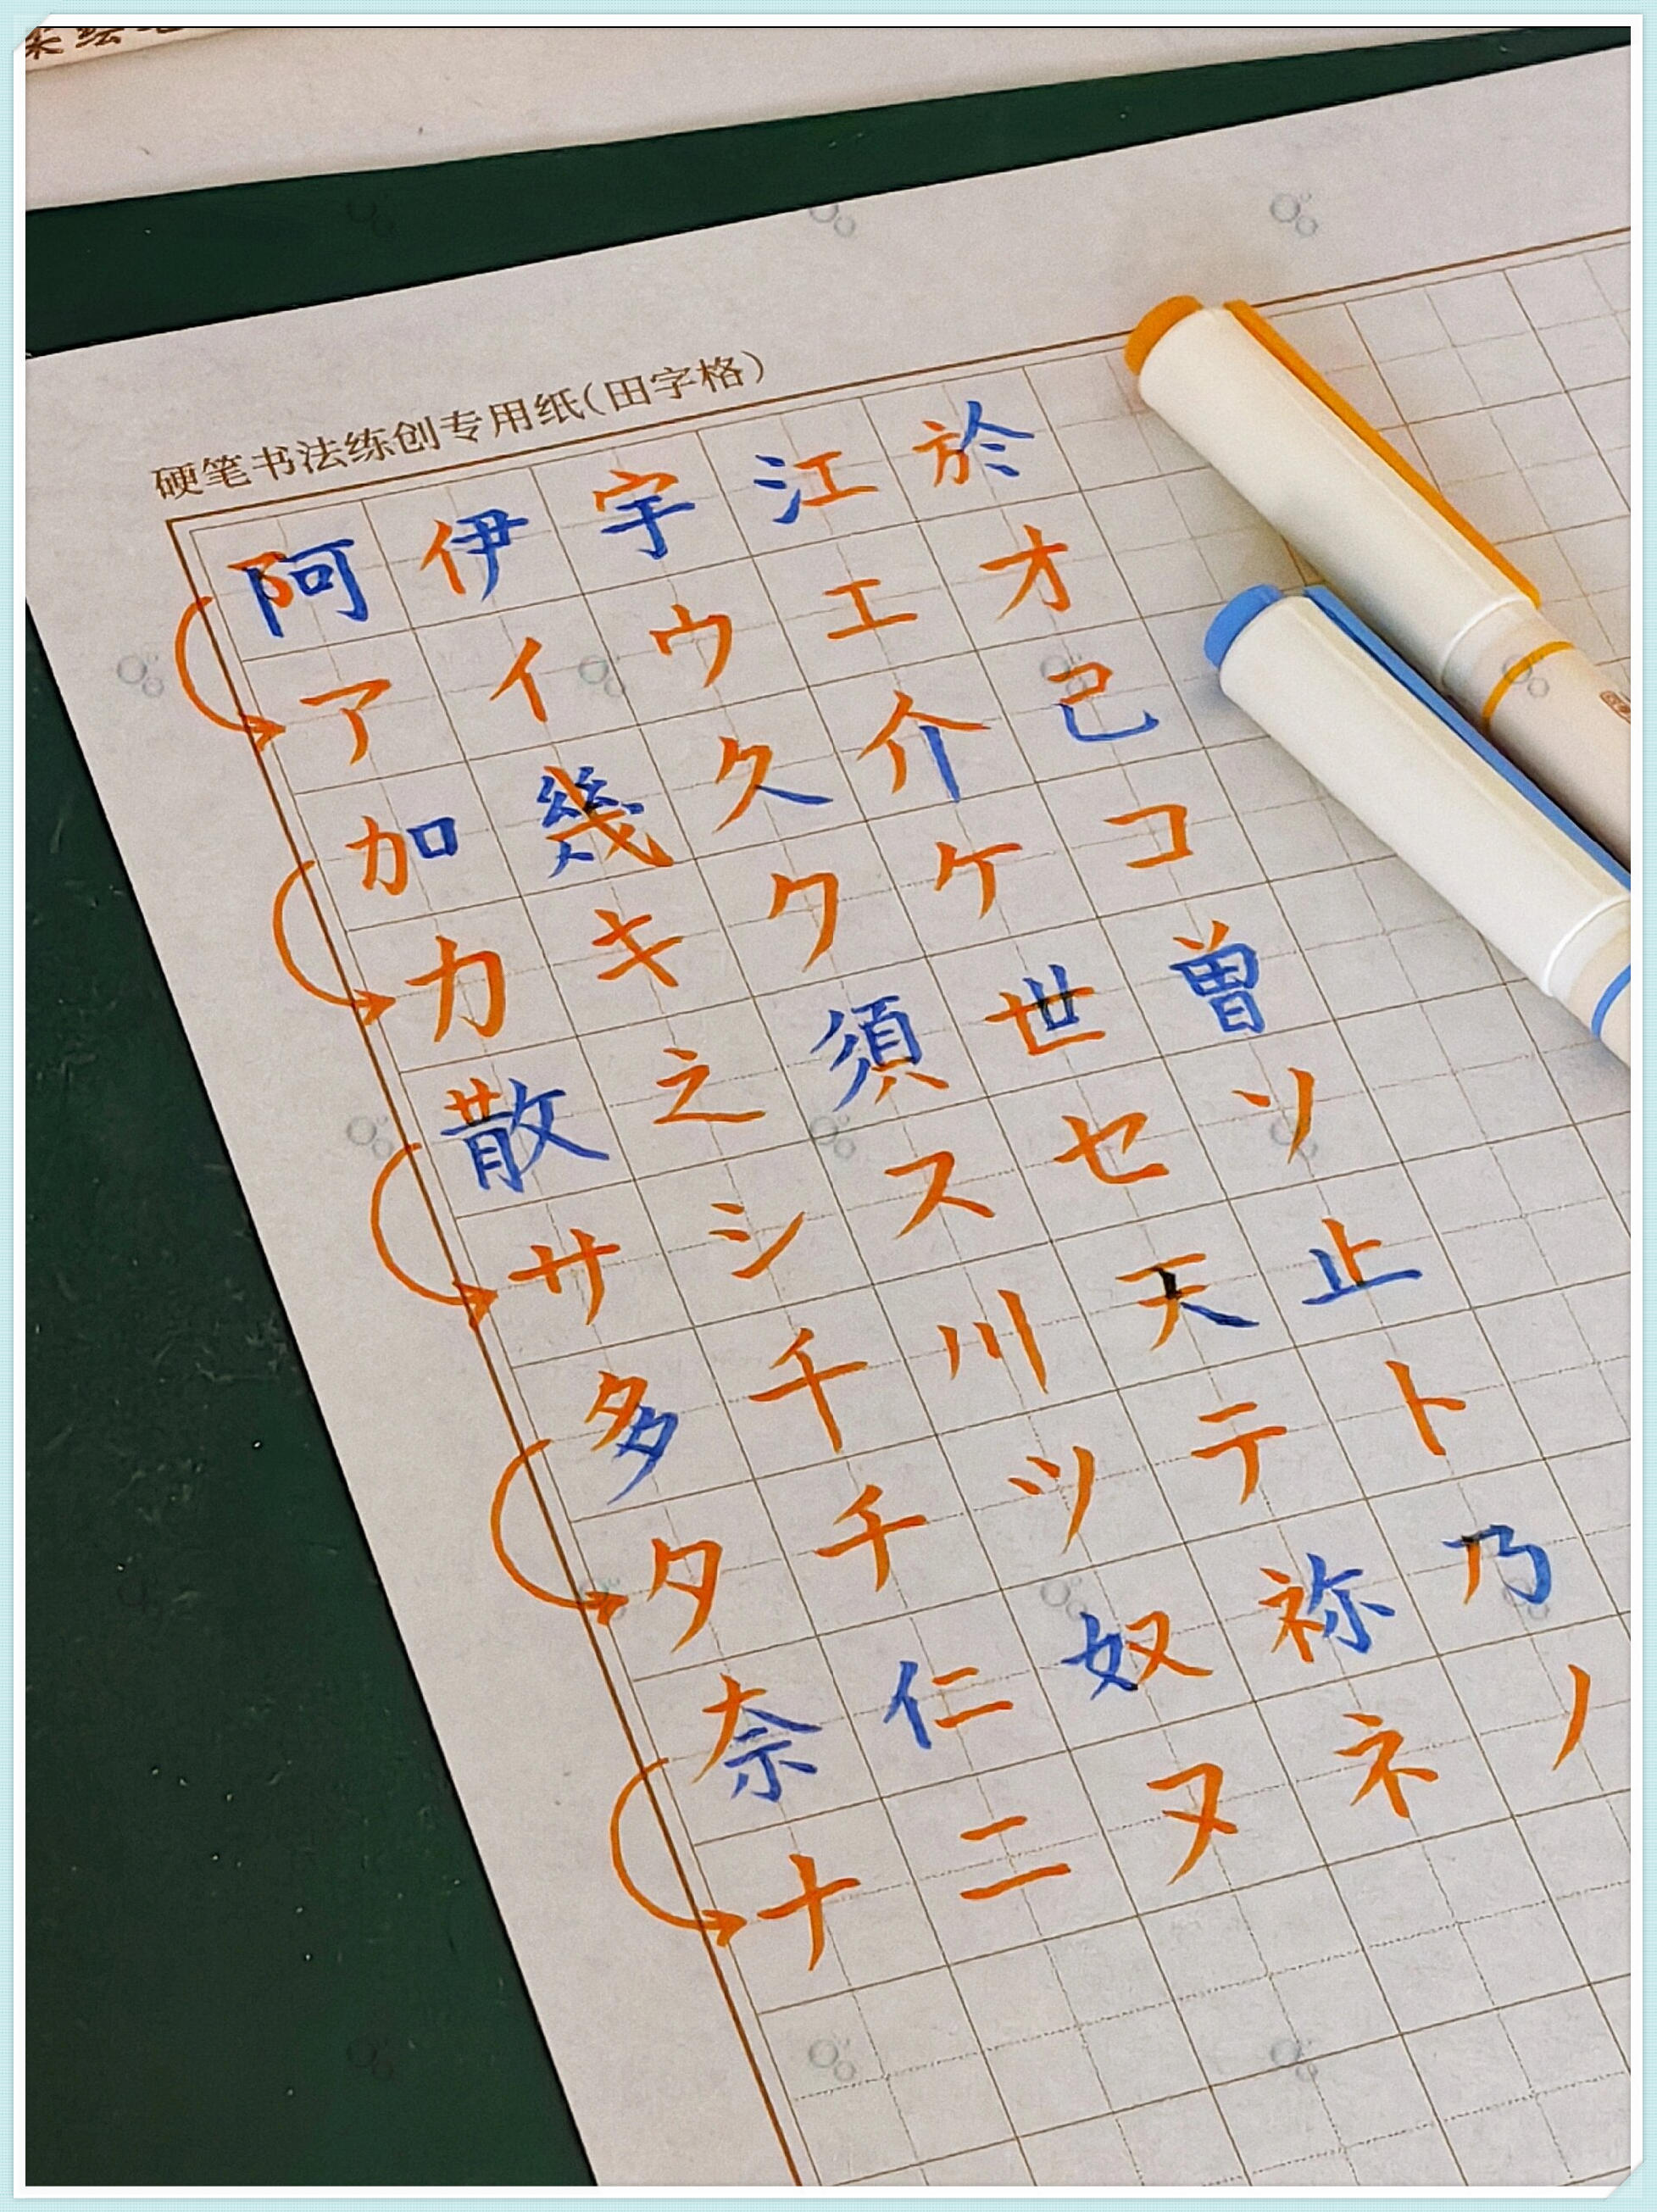 硬笔书法练创专用纸(田字格)
阿伊宇江於
アイウエオ
加幾久介己
カキクケコ
散之須世曽
サシスセソ
多千川天止
タチツテト
奈仁奴祢乃
ナニヌネノ